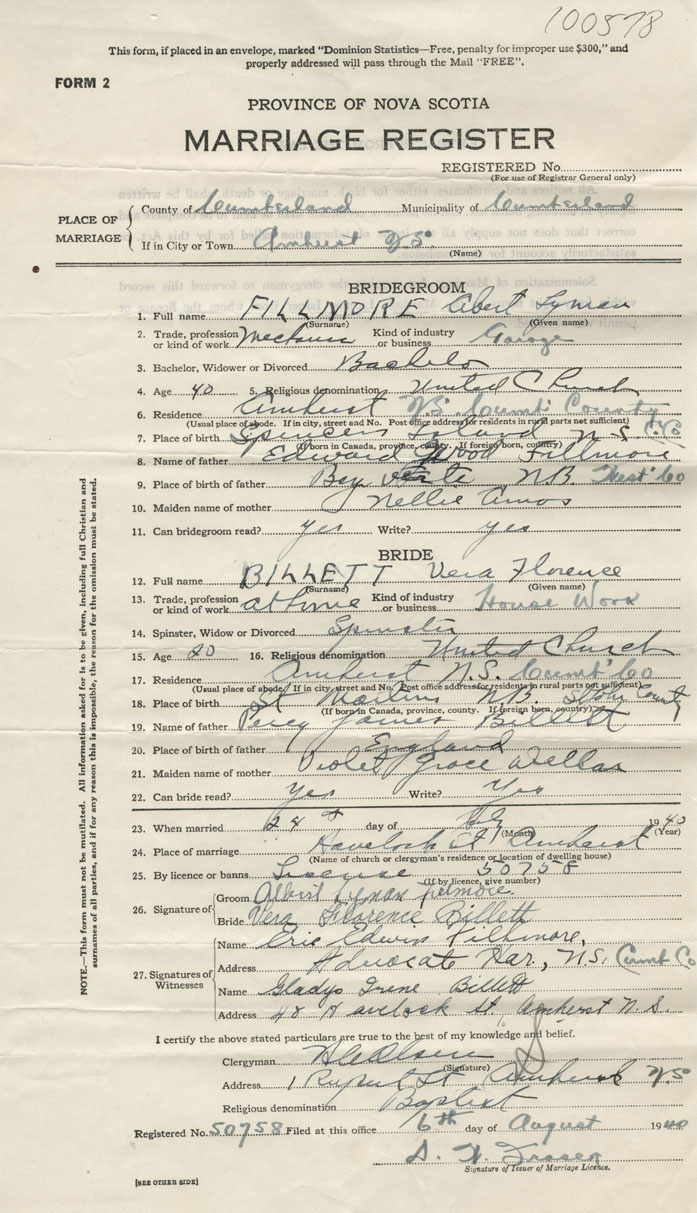 100578
This form, if placed in an envelope, marked "Dominion Statistics—Free, penalty for improper use $300," and
properly addressed will pass through the Mail "FREE".
FORM 2
PROVINCE OF NOVA SCOTIA
MARRIAGE REGISTER
REGISTERED No.
(For use of Registrar General only)
PLACE OF MARRIAGE
County of Cumberland Municipality of Cumberland
If in City or Town Amherst N.S.
(Name)
BRIDEGROOM
1. Full name FILLMORE Albert Lyman
(Surname) (Given name)
2. Trade, profession or kind of work Mechanic Kind of industry or business Garage
3. Bachelor, Widower or Divorced Bachelor
4. Age 40 5. Religious denomination United Church
6. Residence Amherst N.S. Cumb. County
(Usual place of abode. If in city, street and No. Post office address for residents in rural parts not sufficient)
7. Place of birth Spencers Island N. S.
(If born in Canada, province, county. If foreign born, country)
8. Name of father Edward Wood Fillmore
9. Place of birth of father Bay Verte NB West' Co
10. Maiden name of mother Nellie Amos
11. Can bridegroom read? yes Write? yes
BRIDE
12. Full name BILLETT Vera Florence
(Surname) (Given name)
13. Trade, profession or kind of work at home Kind of industry or business House Work
14. Spinster, Widow or Divorced Spinster
15. Age 20 16. Religious denomination United Church
17. Residence Amherst N.S. Cumb' Co
(Usual place of abode. If in city, street and No. Post office address for residents in rural parts not sufficient)
18. Place of birth St Martins NB St John County
(If born in Canada, province, county. If foreign born, country)
19. Name of father Percy James Billett
20. Place of birth of father England
21. Maiden name of mother Violet Grace
22. Can bride read? Yes Write? Yes
23. When married 24 day of July 1940
(Month) (Year)
24. Place of marriage Havelock St Amherst
(Name of church or clergyman's residence or location of dwelling house)
25. By licence or banns License 50758
(If by licence, give number)
26. Signature of
Groom Albert Lyman Fillmore
Bride Vera Florence Billett
27. Signatures of Witnesses
Name Eric Edwin Fillmore,
Address Advocate Har., N.S. Cumb Co
Name Gladys Irene Billett
Address 48 Havelock St. Amherst N.S.
I certify the above stated particulars are true to the best of my knowledge and belief.
Clergyman
(Signature)
Address 1 Rupert St Amherst N.S.
Religious denomination Baptist
Registered No. 50758 Filed at this office 6th day of August 1940
Signature of Issuer of Marriage Licence.
[SEE OTHER SIDE]
NOTE.—This form must not be mutilated. All information asked for is to be given, including full Christian and
surnames of all parties, and if for any reason this is impossible, the reason for the omission must be stated.